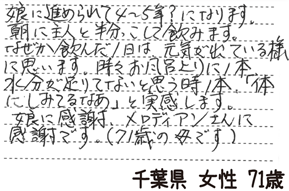 娘に進められて4〜5年?になります。
朝に主人と半分こして飲みます。
なぜか飲んだ1日は、元気が出ている様
に思います。時々お風呂上りに1本
水分が足りてないと思う時1本。「体
にしみてるなあ」と実感します。
娘に感謝、メロディアンさんに
感謝です。(71歳の母です)
千葉県 女性 71歳